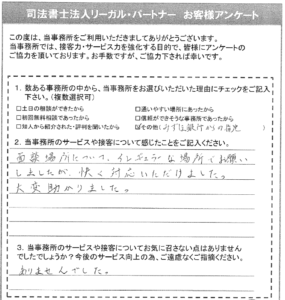 司法書士法人リーガル・パートナー お客様アンケート
この度は、当事務所をご利用いただきましてありがとうございます。
当事務所では、接客力・サービス力を強化する目的で、皆様にアンケートの
ご協力を頂いております。お手数ですが、ご協力下されば幸いです。
1. 数ある事務所の中から、当事務所をお選びいただいた理由にチェックをご記入
下さい。(複数選択可)
□土日の相談ができたから □通いやすい場所にあったから
□初回無料相談であったから □信頼ができそうな事務所であったから
□知人から紹介された・評判を聞いたから ☑その他(みずほ銀行からの
2. 当事務所のサービスや接客について感じたことをご記入ください。
面談場所について、イレギュラーな場所でお願い
しましたが、快く対応いただけました。
大変助かりました。
3. 当事務所のサービスや接客についてお気に召さない点はありません
でしたでしょうか?今後のサービス向上の為、ご遠慮なくご指摘ください。
ありませんでした。